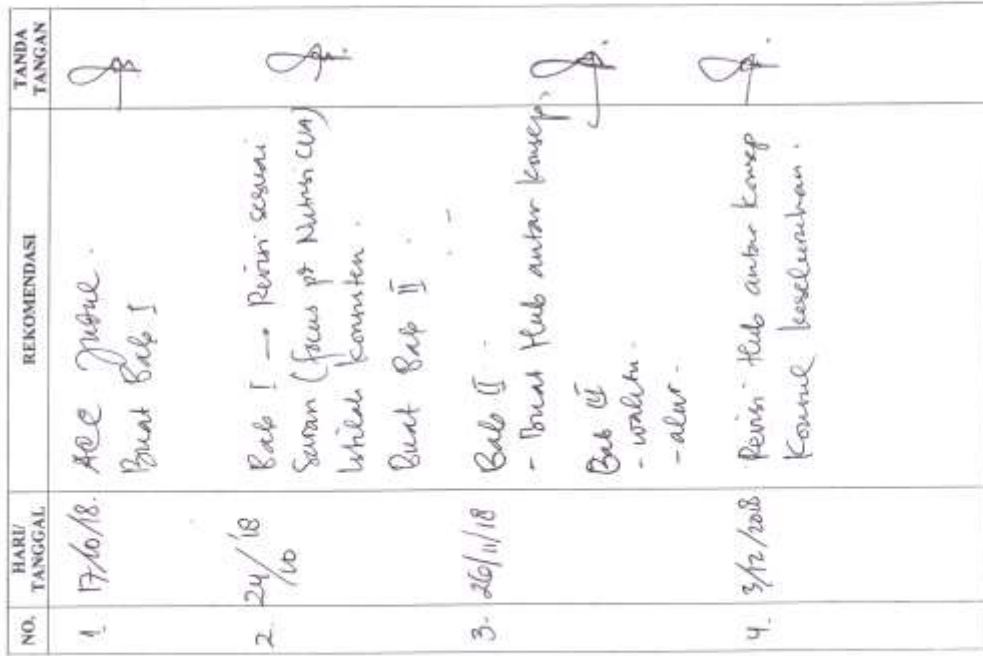 NO.
HARI/
TANGGAL
REKOMENDASI
TANDA
TANGAN
1.
17/10/18.
ACC Judul.
Buat Bab I
2.
24/10 '18
Bab I → Revisi sesuai
Saran (focus pd Nutrisi CVA)
Istilah konsisten.
Buat Bab II
3.
26/11/18
Bab II.
- Buat Hub antar konsep,
Bab III
- waktu.
- alur.
4.
3/12/2018
Revisi Hub antar konsep
Konsul keseluruhan.